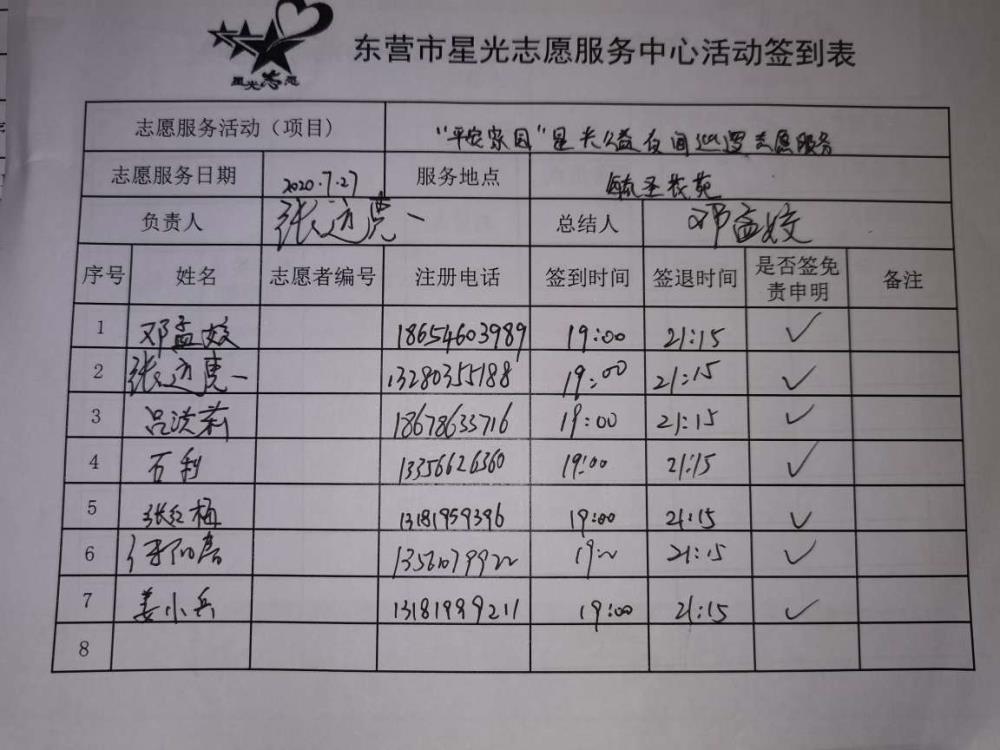 星光志愿
东营市星光志愿服务中心活动签到表
志愿服务活动（项目） “平安家园”星光公益夜间巡逻志愿服务
志愿服务日期 2020.7.27 服务地点
负责人 总结人 邓孟姣
序号 姓名 志愿者编号 注册电话 签到时间 签退时间 是否签免责申明 备注
1 邓孟姣 18654603989 19:00 21:15 ✓
2 13280355188 19:00 21:15 ✓
3 吕洪莉 18678633716 19:00 21:15 ✓
4 石利 13356626360 19:00 21:15 ✓
5 张红梅 13181959396 19:00 21:15 ✓
6 21:15 ✓
7 姜小兵 13181999211 19:00 21:15 ✓
8